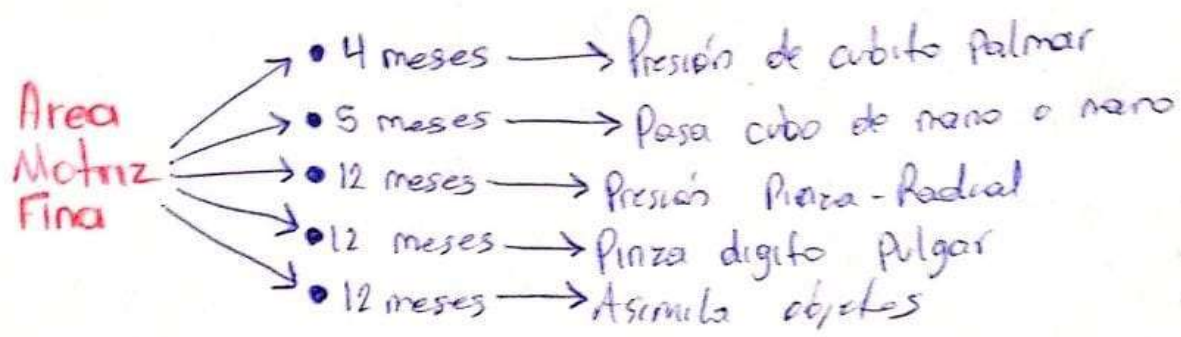 Area
Motriz
Fina
• 4 meses → Presión de cubito Palmar
• 5 meses → Pasa cubo de mano a mano
• 12 meses → Presión Pinza-Radial
• 12 meses → Pinza digito Pulgar
• 12 meses → Asimila objetos